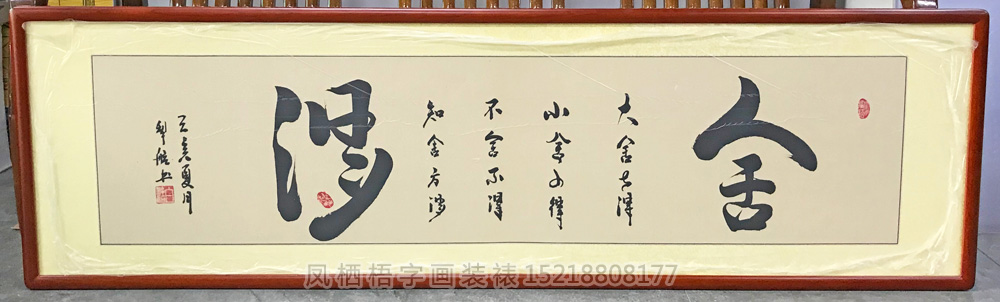 舍
大舍大得
小舍小得
不舍不得
知舍方得
得
夏月
凤栖梧字画装裱15218808177